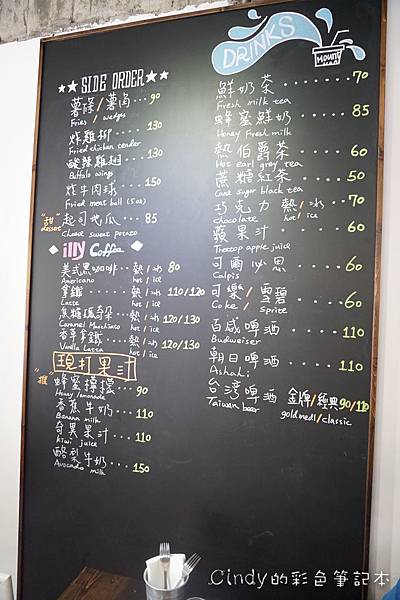 ★★ SIDE ORDER ★★
薯條/薯角・・・90
Fries / wedges
炸雞柳・・・・130
Fried chicken tender
酸辣雞翅・・・130
Buffalo wings
炸牛肉球・・・・150
Fried meat ball (5oz)
"甜" 起司地瓜・・85
dessert Cheese sweet potato
illy Coffee
美式黑咖啡・熱/冰 80
Americano hot / ice
拿鐵・・・・熱/冰 110/120
Latte hot / ice
焦糖瑪奇朵・熱/冰・120/130
Caramel Macchiato hot / ice
香草拿鐵・・熱/冰・120/130
Vanilla Latte hot / ice
現打果汁
"推" 蜂蜜檸檬・・・90
Honey lemonade
香蕉牛奶・・・110
Banana milk
奇異果汁・・・110
kiwi juice
酪梨牛奶・・・150
Avocado milk
DRINKS
Mount
鮮奶茶・・・・・70
Fresh milk tea
蜂蜜鮮奶・・・・85
Honey Fresh milk
熱伯爵茶・・・・60
Hot earl grey tea
蔗糖紅茶・・・・50
Cane sugar black tea
巧克力 熱/冰・・70
chocolate hot / ice
蘋果汁・・・・・60
Treetop apple juice
可爾必思・・・・60
Calpis
可樂/雪碧・・・60
Coke / sprite
百威啤酒・・・・110
Budweiser
朝日啤酒・・・・110
Ashahi
台灣啤酒 金牌/經典 90/110
Taiwan beer gold medl/classic
Cindy的彩色筆記本